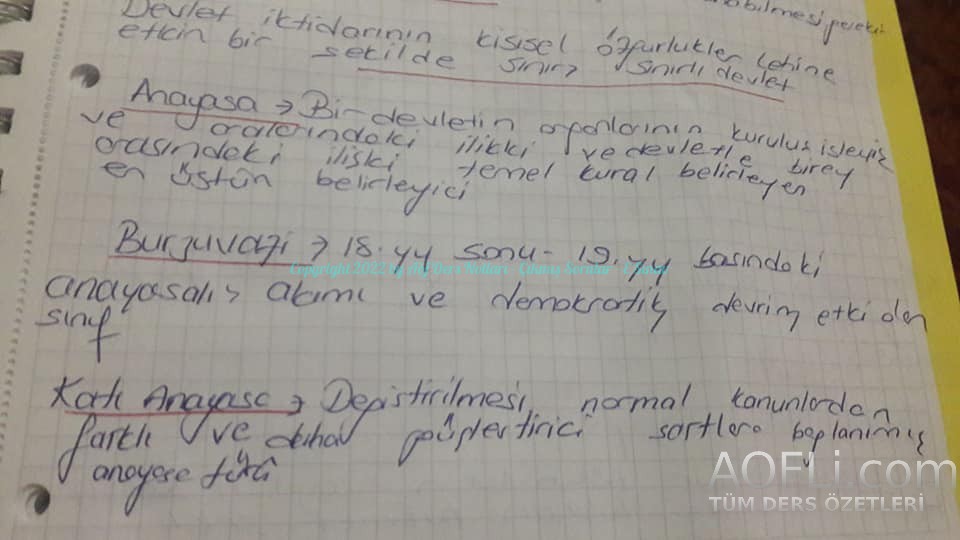 bilmesi gerekir
Devlet iktidarının kişisel özgürlükler lehine
etkin bir şekilde sınırı sınırlı devlet
Anayasa → Bir devletin organlarının kuruluş işleyiş
ve aralarındaki ilikki ve devletle birey
arasındaki ilişki temel kural belirleyen
en üstün belirleyici
Burjuvazi → 18. yy sonu - 19. yy basındaki
anayasalış akımı ve demokratik devrim etki den
sınıf
Katı Anayasa → Degistirilmesi, normal kanunlardan
farklı ve daha güçlertirici sartlara baglanmış
anayasa türü
AOFLi.com
TÜM DERS ÖZETLERİ